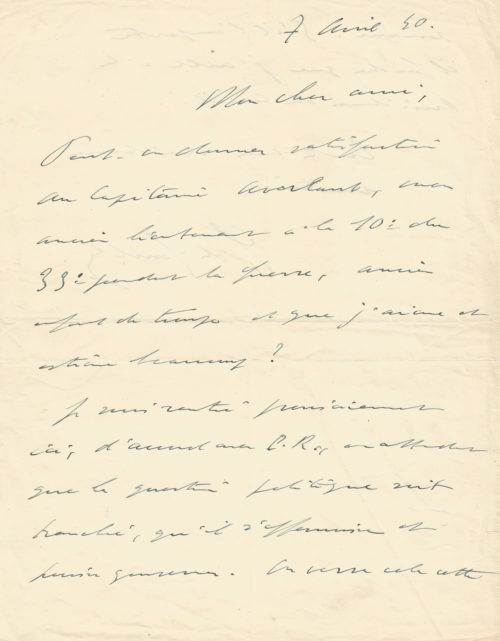 7 Avril 40.
Mon cher ami,
Peut-on donner satisfaction
au Capitaine Averlant, mon
ancien lieutenant à la 10e du
33e pendant la guerre, ancien
enfant de troupe et que j'aime et
estime beaucoup ?
Je suis rentré provisoirement
ici, d'accord avec P.R., en attendant
que la question politique soit
tranchée, qu'il s'affermisse et
puisse gouverner. On verra cela cette